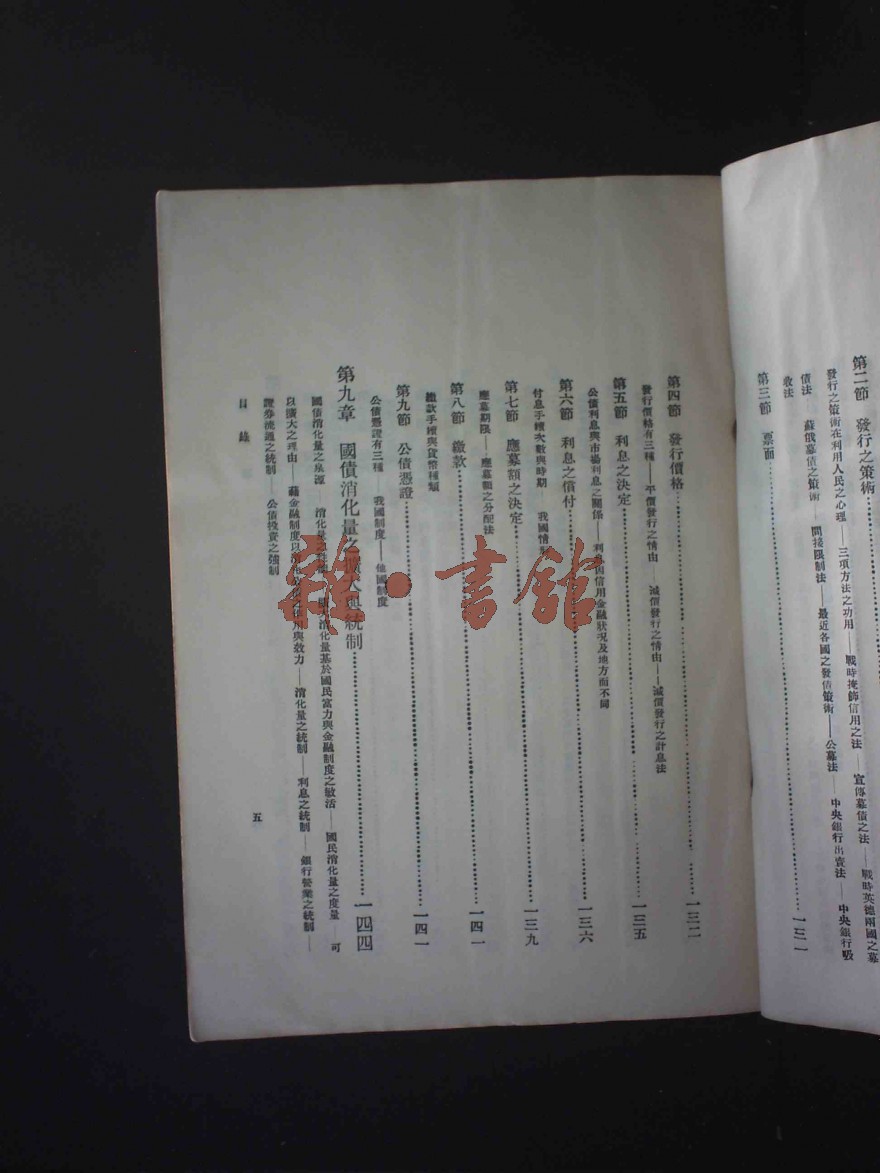 第二節 發行之策術
發行之策術在利用人民之心理——三項方法之功用——戰時掩飾信用之法——宣傳募債之法——戰時英德兩國之募
債法——蘇俄募債之策術——間接限制法——最近各國之發債策術——公募法——中央銀行出賣法——中央銀行吸
收法
第三節 票面……一三一
第四節 發行價格……一三二
發行價格有三種——平價發行之情由——減價發行之情由——減價發行之計息法
第五節 利息之決定……一三五
公債利息與市場利息之關係——利息因信用金融狀況及地方而不同
第六節 利息之償付……一三六
付息手續次數與時期——我國情形
第七節 應募額之決定……一三九
應募期限——應募額之分配法
第八節 繳款……一四一
繳款手續與貨幣種類
第九節 公債憑證……一四一
公債憑證有三種——我國制度——他國制度
第九章 國債消化量之擴大與統制……一四四
國債消化量之泉源——消化量基於國民富力與金融制度之敏活——國民消化量之度量——可
以擴大之理由——藉金融制度以用與效力——消化量之統制——利息之統制——銀行營業之統制——
證券流通之統制——公債投資之強制
目錄
五
雜·書館